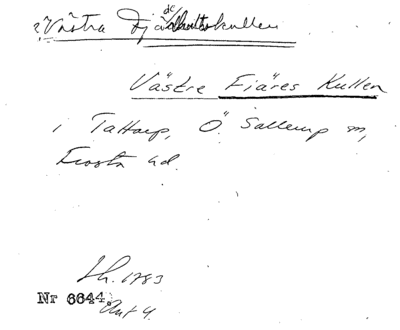 Västra
Västre Fiäres Kullen
i Tattarp, Ö. Sallerup sn,
Frosta hd.
Lh. 1783
Nr 6644. Akt 4.